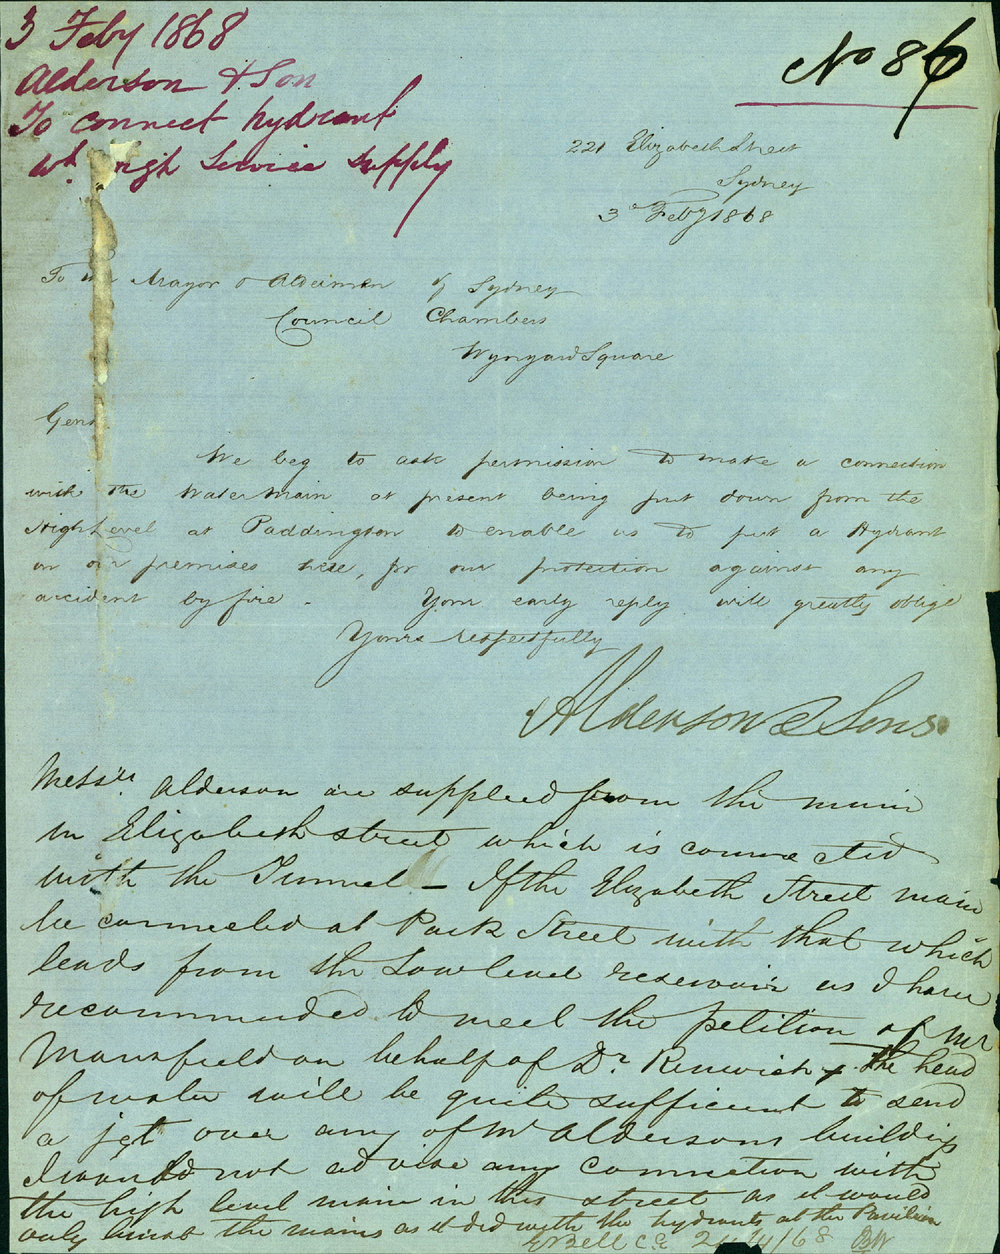 3 Feby 1868
Alderson & Son
To connect hydrant
wh high Service supply
No 86
221 Elizabeth Street
Sydney
3d Feby 1868
To the Mayor & Aldermen of Sydney
Council Chambers
Wynyard Square
Gent
We beg to ask permission to make a connection
with the Water Main at present being put down from the
High Level at Paddington to enable us to put a Hydrant
on our premises here, for our protection against any
accident by fire. Your early reply will greatly oblige
Yours respectfully
Alderson & Sons.
Messrs. Alderson are supplied from the main
in Elizabeth street which is connected
with the Tunnel – If the Elizabeth Street main
be connected at Park Street with that which
leads from the Low level reservoir as I have
recommended to meet the petition of Mr
Mansfield on behalf of Dr. Renwick, the head
of water will be quite sufficient to send
a jet over any of Mr Aldersons buildings
I would not advise any connection with
the high level main in this street as it would
only burst the mains as it did with the hydrants at the Pavilion
E Bell C.E 24/4/68